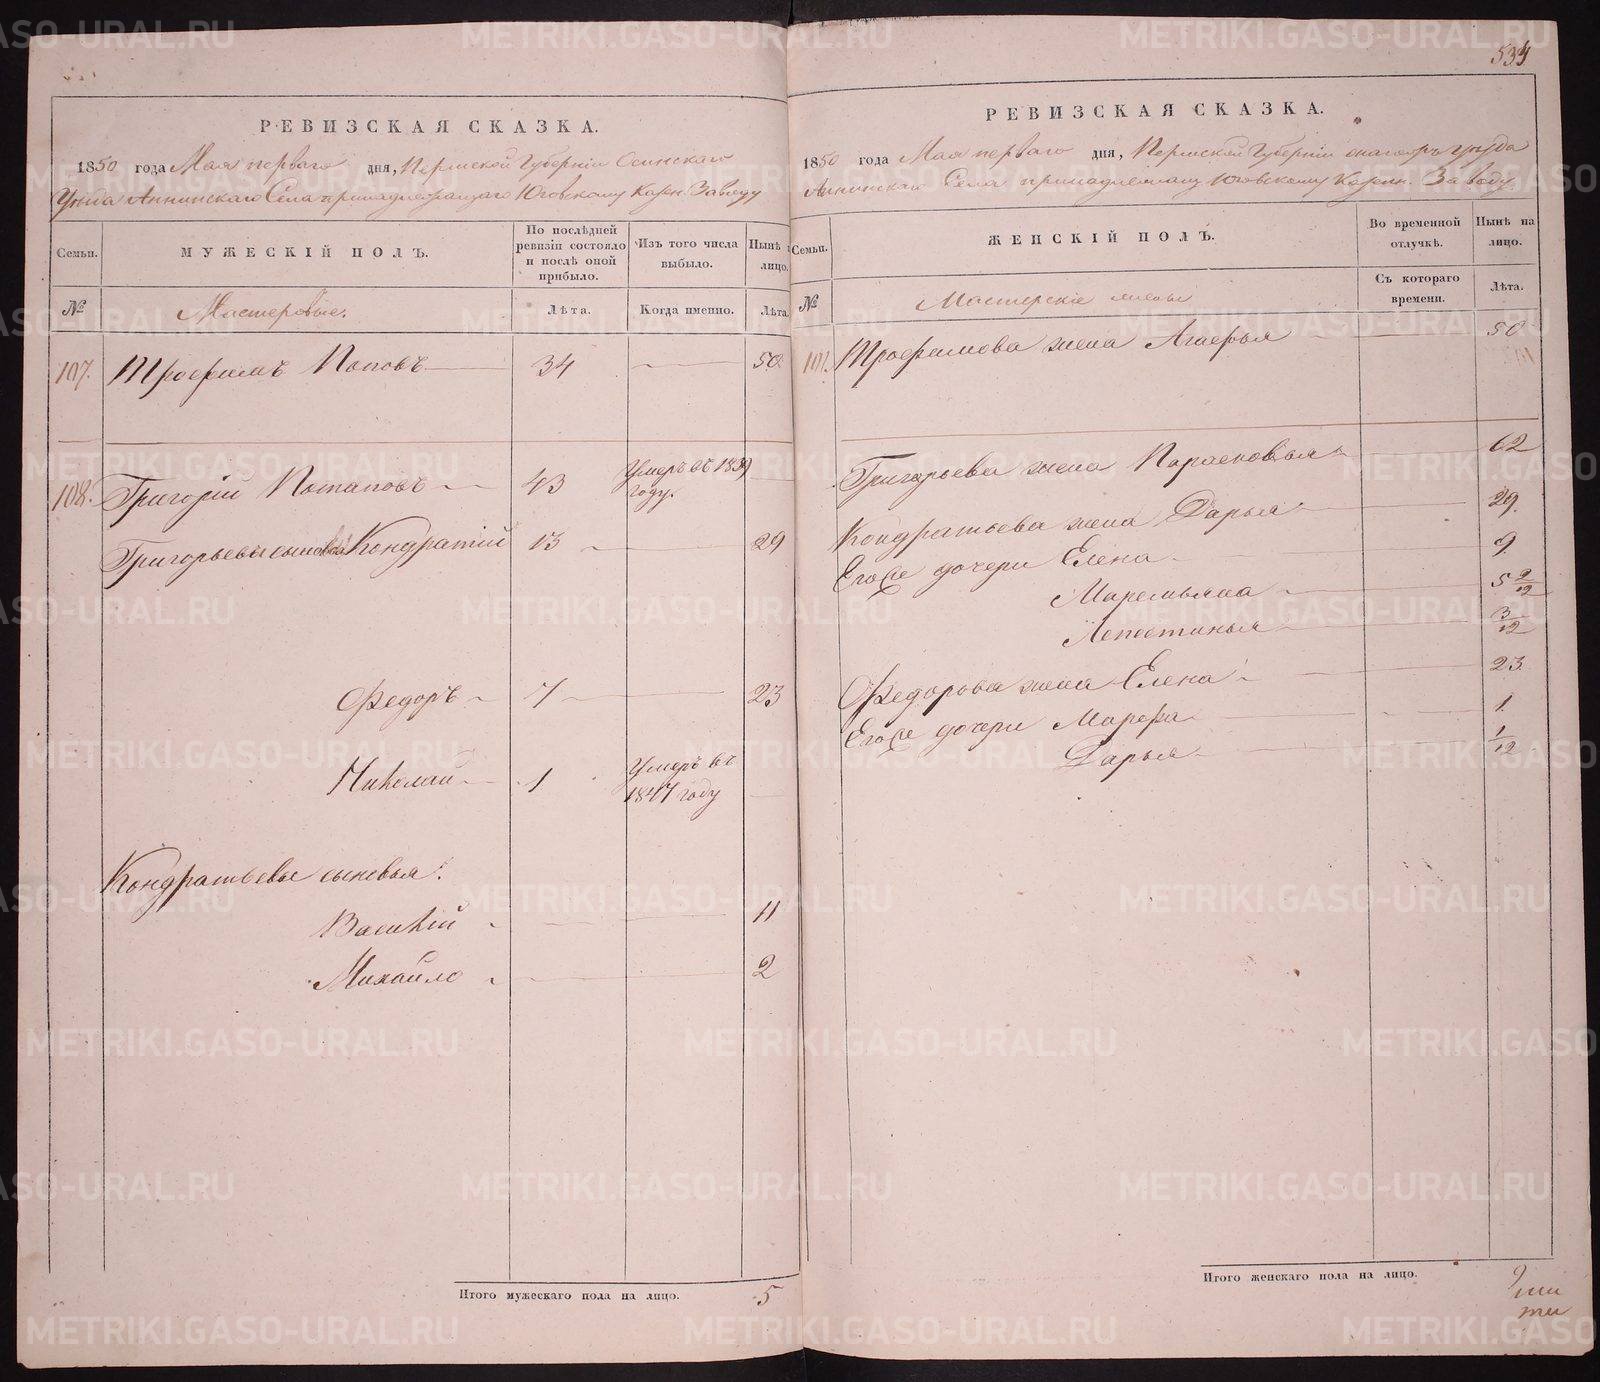 РЕВИЗСКАЯ СКАЗКА.
1850 года Мая перваго дня, Пермской Губерніи Осинскаго
Уѣзда Аннинскаго Села принадлежащаго Юговскому Казен. Заводу
Семьи.
МУЖЕСКІЙ ПОЛЪ.
По послѣдней ревизіи состояло и послѣ оной прибыло.
Изъ того числа выбыло.
Нынѣ на лицо.
№
Мастеровые.
Лѣта.
Когда именно.
Лѣта.
107. Трофимъ Поповъ 34 50
108. Григорій Потаповъ 43 Умеръ въ 1839 году.
Григорьевы сыновья Кондратій 13 29
Федоръ 7 23
Николай 1 Умеръ въ 1847 году
Кондратьевы сыновья:
Василій 11
Михайло 2
Итого мужескаго пола на лицо. 5
534
РЕВИЗСКАЯ СКАЗКА.
1850 года Мая перваго дня, Пермской Губерніи онагожъ уѣзда
Аннинскаго Села принадлежащаго Юговскому Казен. Заводу
Семьи.
ЖЕНСКІЙ ПОЛЪ.
Во временной отлучкѣ.
Нынѣ на лицо.
№
Мастерскіе жены
Съ котораго времени.
Лѣта.
107. Трофимова жена Агафья 50
Григорьева жена Парасковья 62
Кондратьева жена Дарья 29.
Егоже дочери Елена 9
Маремьяна 5 2/12
Устинья 3/12
Федорова жена Елена 23
Егоже дочери Марфа 1
Дарья 1/12
Итого женскаго пола на лицо. 9
METRIKI.GASO-URAL.RU